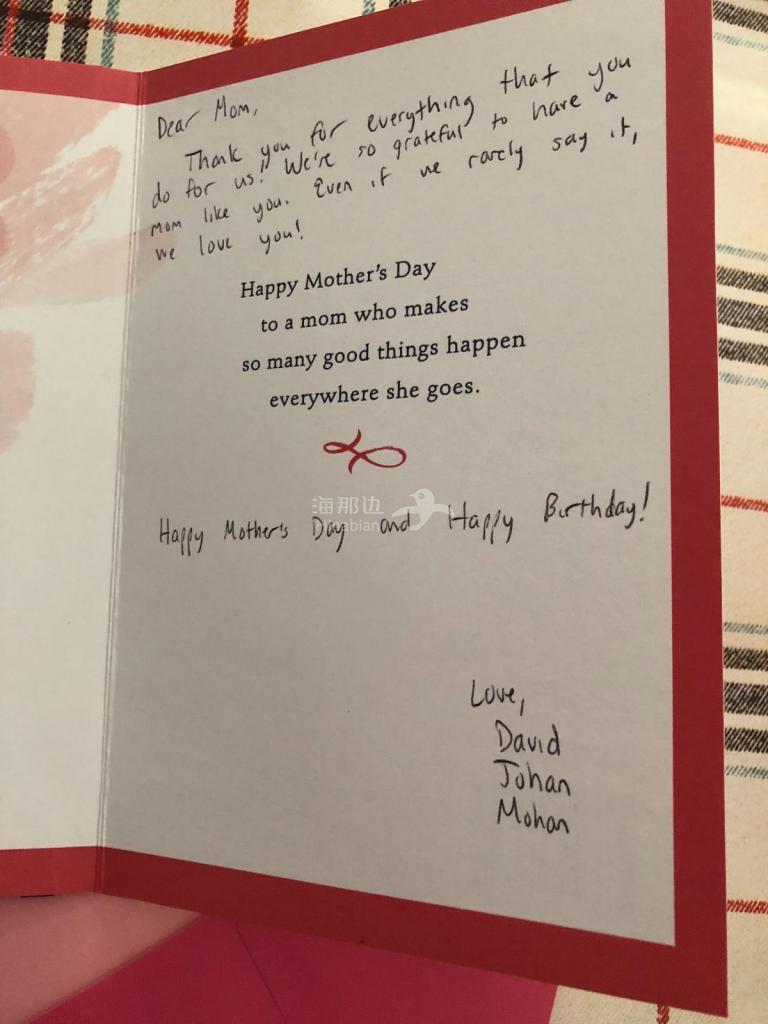 Dear Mom,
Thank you for everything that you
do for us! We're so grateful to have a
mom like you. Even if we rarely say it,
we love you!
Happy Mother's Day
to a mom who makes
so many good things happen
everywhere she goes.
海那边
Hinabian
Happy Mother's Day and Happy Birthday!
Love,
David
Johan
Mohan